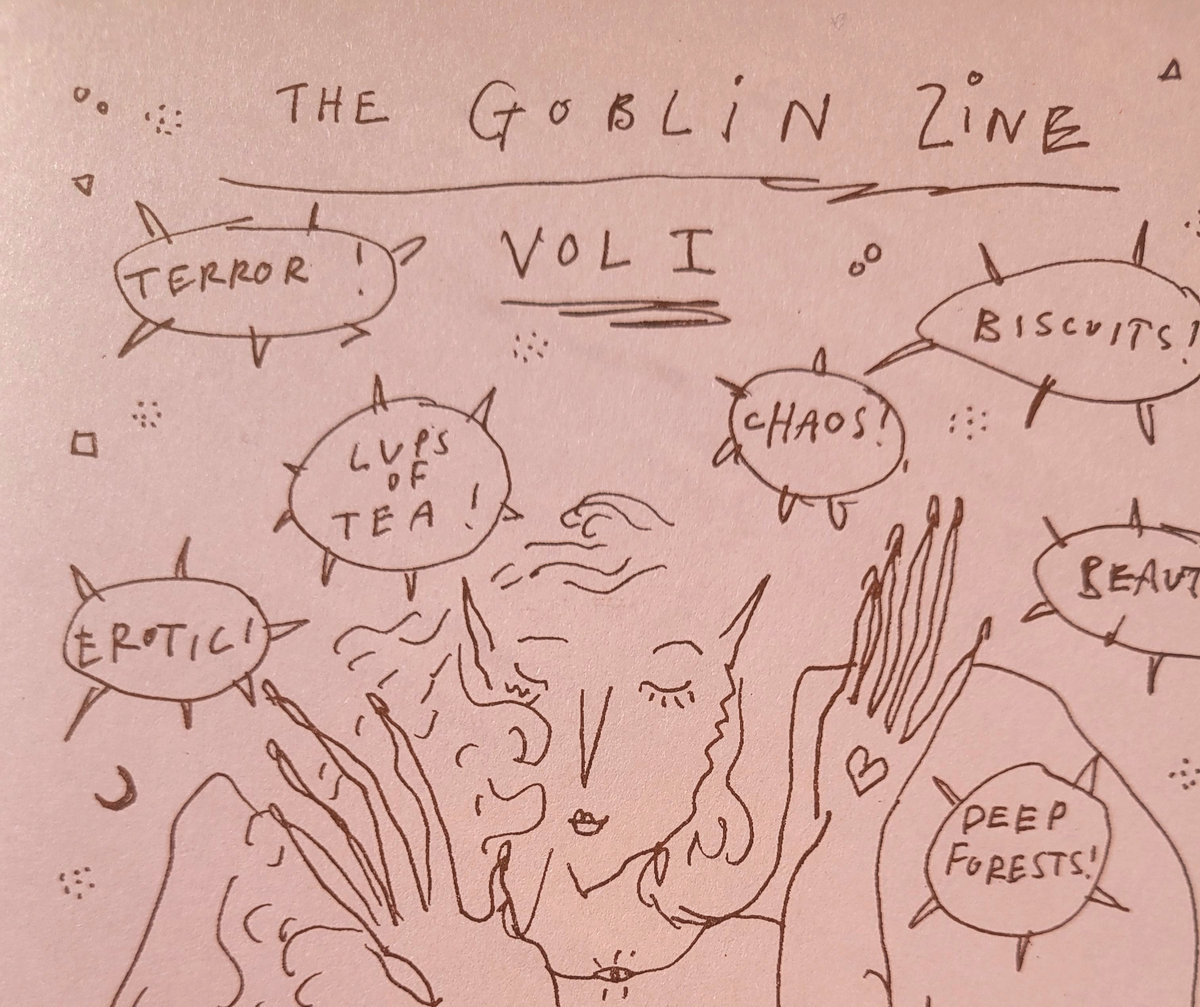 THE GOBLIN ZINE
VOL I
TERROR!
BISCUITS!
CHAOS!
LUPS
OF
TEA!
BEAUT
EROTIC!
DEEP
FORESTS!